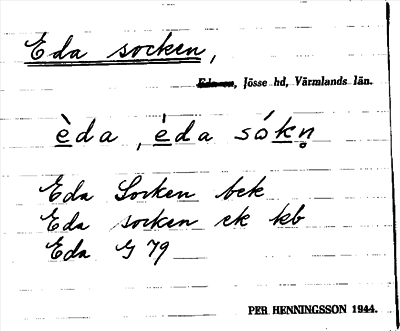 Eda socken,
Eda sn, Jösse hd, Värmlands län.
è̲da, è̲da sók̲n̥
Eda Socken bek
Eda socken ek kb
Eda G 79
PER HENNINGSSON 1944.